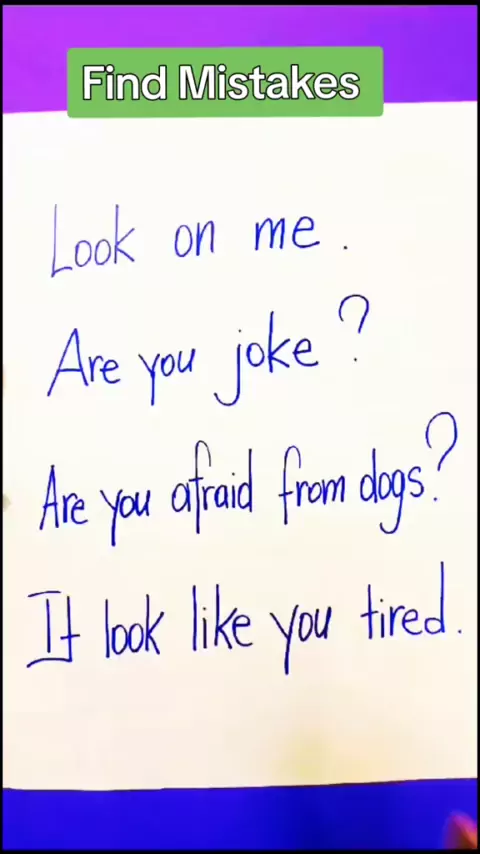 Find Mistakes
Look on me.
Are you joke?
Are you afraid from dogs?
It look like you tired.